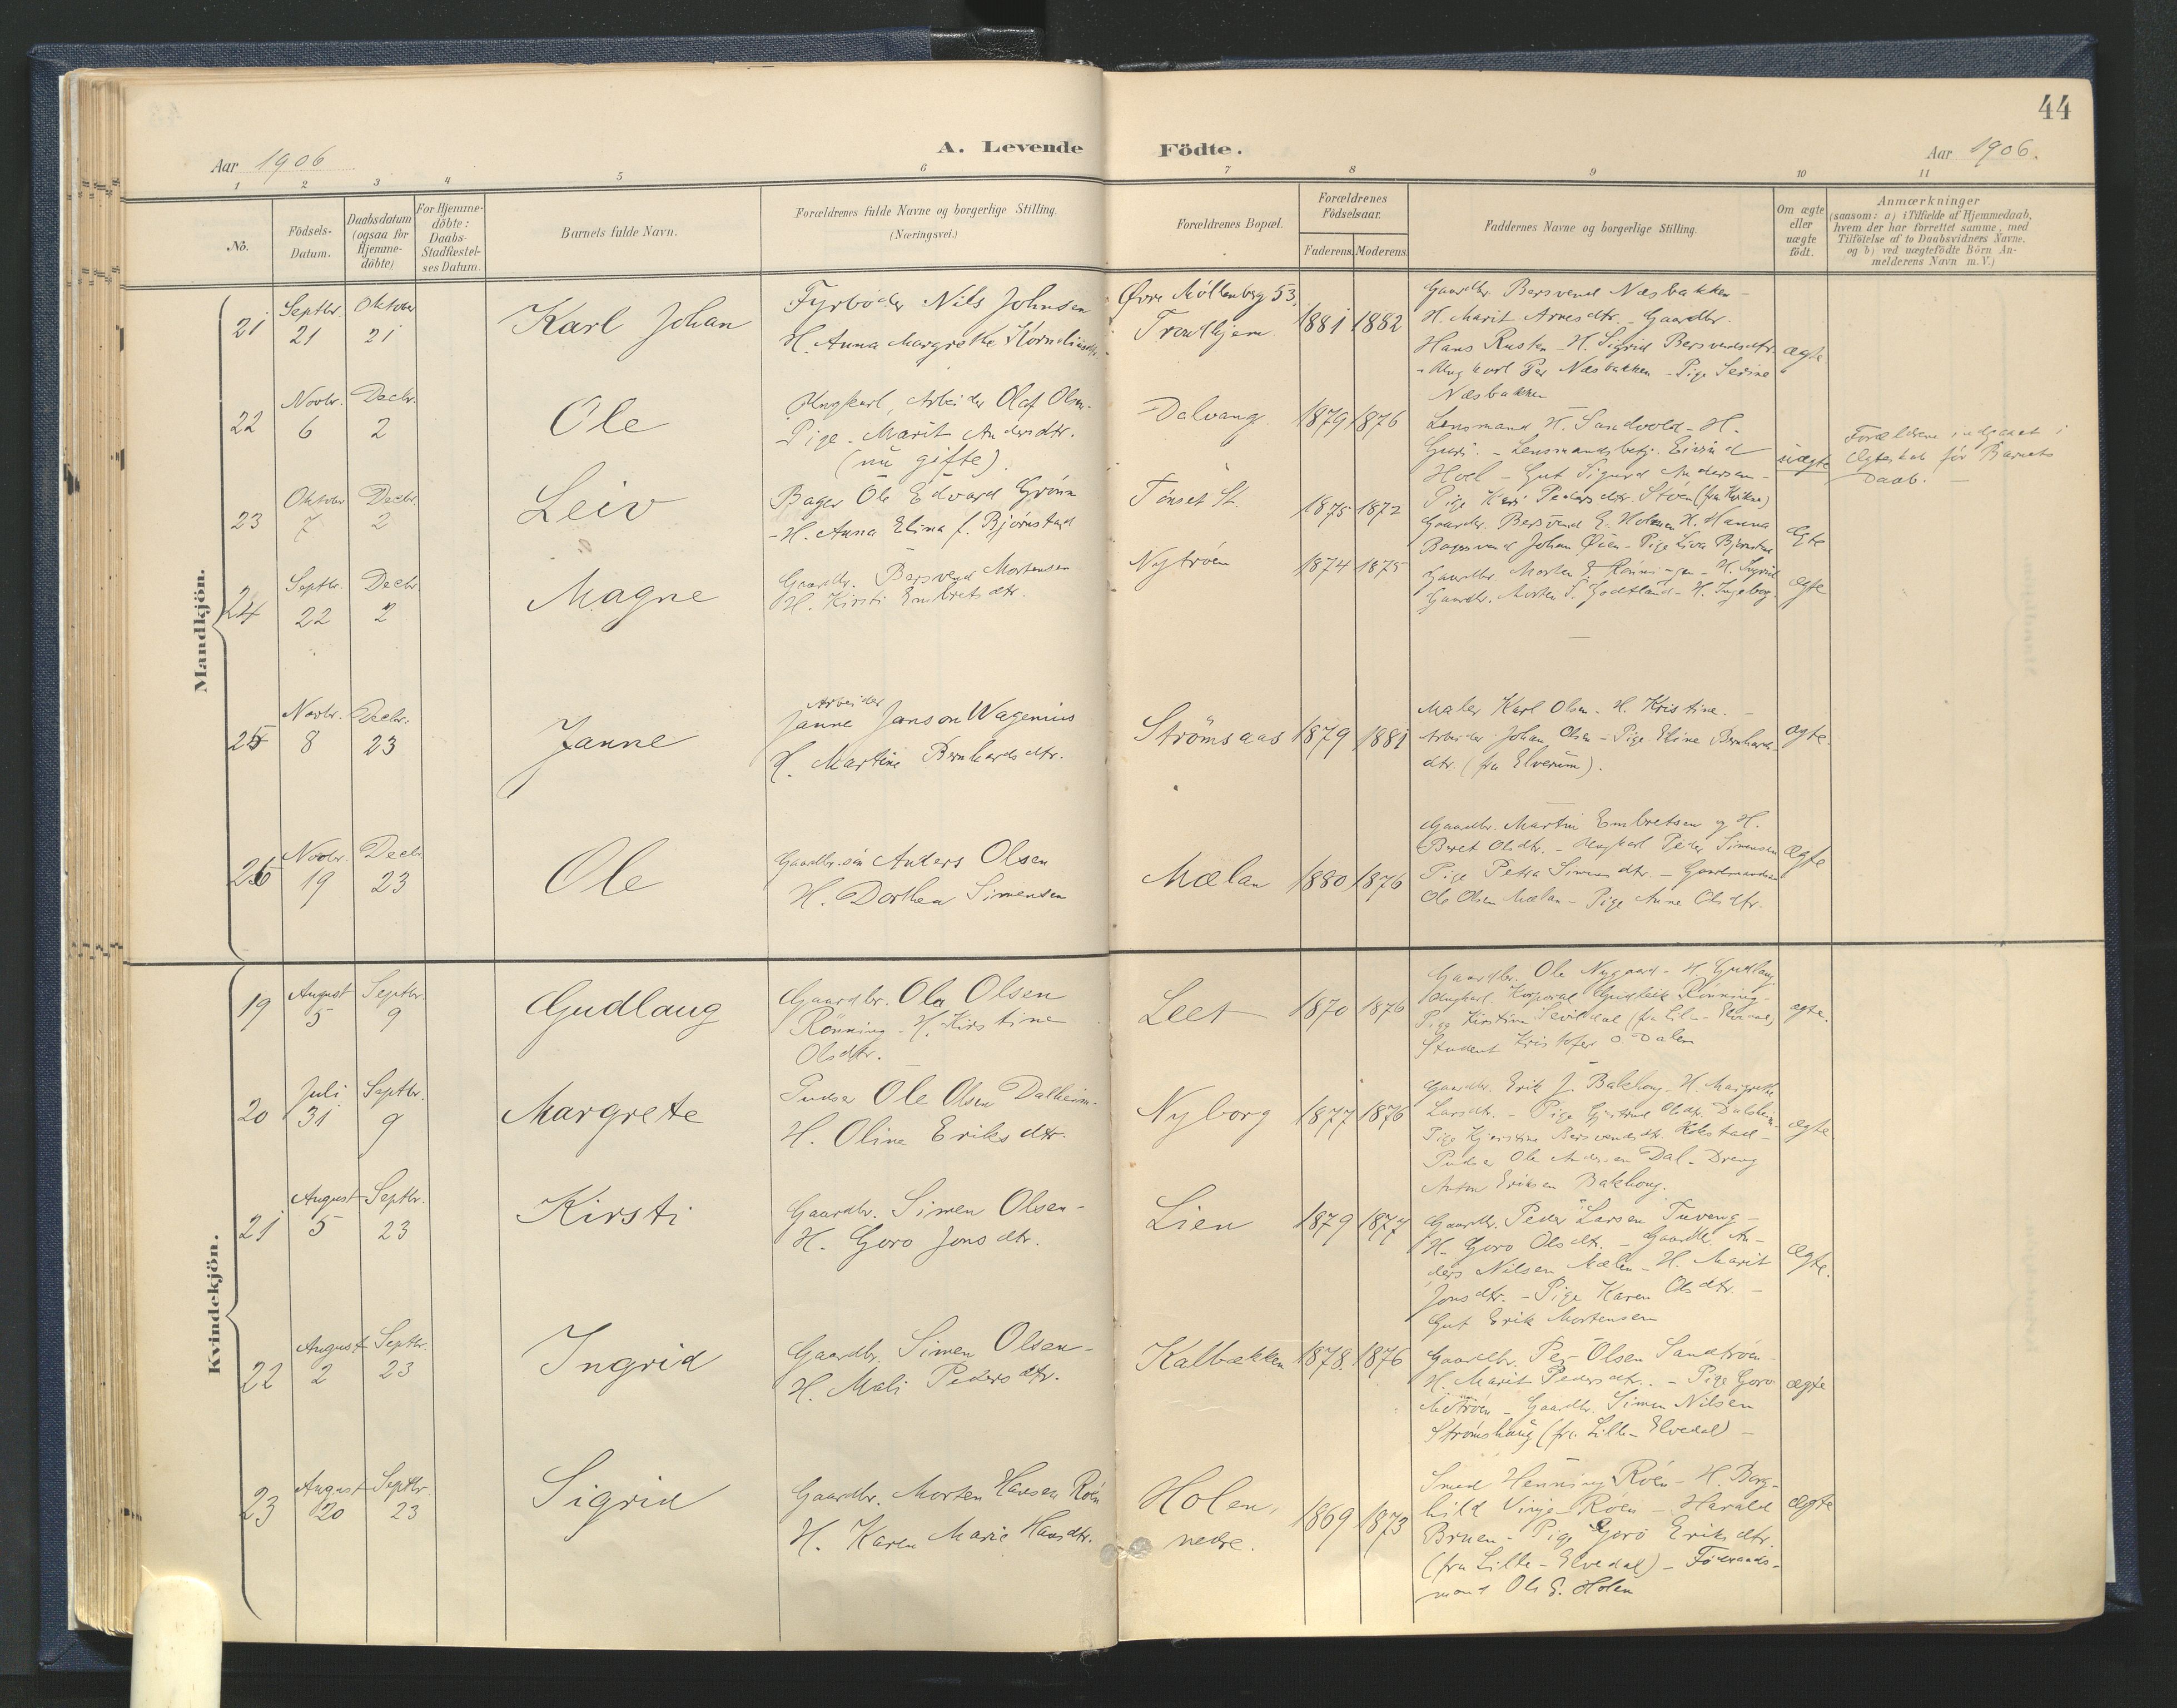 44
Aar 1906
A. Levende Födte.
Aar 1906.
1 2 3 4 5 6 7 8 9 10 11
No.
Födsels-
Datum.
Daabsdatum
(ogsaa for
Hjemme-
döbte)
For Hjemme-
döbte:
Daabs-
Stadfæstel-
ses Datum.
Barnets fulde Navn.
Forældrenes fulde Navne og borgerlige Stilling.
(Næringsvei.)
Forældrenes Bopæl.
Forældrenes
Födselsaar.
Faderens. Moderens.
Faddernes Navne og borgerlige Stilling.
Om ægte
eller
uægte
födt.
Anmærkninger
(saasom: a) i Tilfælde af Hjemmedaab,
hvem der har forrettet samme, med
Tilföielse af to Daabsvidners Navne,
og b) ved uægtefödte Börn An-
melderens Navn m. V.)
Mandkjön.
21
Septbr.
21
Oktober
21
Karl Johan
Fyrböder Nils Johnsen
H. Anna Margrethe
Øvre Möllenberg 53,
Trondhjem
1881 1882
Gaardbr. Bersvend Næsbakken -
H. Marit Arnesdtr. - Gaardbr.
Hans Rusten - H. Sigrid Bersvendsdtr.
- Ungkarl Per Næsbakken - Pige Serine
Næsbakken
ægte
22
Novbr.
6
Decbr.
2
Ole
Ungkarl, Arbeider Olaf Olsen.
Pige Marit Andersdtr.
(nu gifte).
Dalvang
1879 1876
Lensmand H. Sandvold - H.
Guri. - Lensmandsbetj. Eivind
Hoel - Gut Sigurd Andersen -
Pige Kari Pedersdtr. Stöen
uægte
Forældrene indgaaet i
Ægteskab för Barnets
Daab. -
23
Oktober
7
Decbr.
2
Leiv
Bager Ole Edvard Grönn
- H. Anna Elina f. Bjørnstad
Tönset St.
1875 1872
Gaardbr. Bersvend E. Holmen H. Hanna
Bagersvend Johan Øien - Pige Liva Bjørnstad
Ægte
24
Septbr.
22
Decbr.
2
Magne
Gaardbr. Bersvend Mortensen
H. Kirsti Embretsdtr.
Nytröen
1874 1875
Gaardbr. Morten E. Rönningen - H. Ingrid
Gaardbr. Morten S. Godtland - H. Ingeborg.
ægte
25
Novbr.
8
Decbr.
23
Janne
Arbeider
Janne Janson Wagenius
H. Martine Bernhardsdtr.
Strömsaas
1879 1881
Maler Karl Olsen. H. Kristine. -
Arbeider Johan Olsen - Pige Eline Bernhards-
dtr. (fra Elverum).
ægte.
26
Novbr.
19
Decbr.
23
Ole
Gaardbr.sön Anders Olsen
H. Dorthea Simensen
Mælan
1880 1876
Gaardbr. Martin Embretsen og H.
Beret Olsdtr. - Ungkarl Peder Simensen
Pige Petra Simensdtr. - Gaardmandssön
Ole Olsen Mælan - Pige Anne Olsdtr.
ægte
Kvindekjön.
19
August
5
Septbr.
9
Gudlaug
Gaardbr. Ola Olsen
Rönning - H. Kirstine
Olsdtr.
Leet
1870 1876
Gaardbr. Ole Nygaard - H. Gudlaug
Ungkarl Korporal Gudleik Rönning -
Pige Kirstine (fra Lille-Elvedal)
Student Kristofer O. Dalen
ægte.
20
Juli
31
Septbr.
9
Margrete
Pudser Ole Olsen Dalheim.
H. Oline Eriksdtr.
Nyborg
1877 1876
Gaardbr. Erik J. Bakhaug. H. Margrethe
Larsdtr. - Pige Gjertrud Olsdtr. Dalsheim.
Pige Kjerstine Bersvendsdtr. Kokstad -
Pudser Ole Andersen Dal - Dreng
Anton Eriksen Bakhaug.
ægte.
21
August
5
Septbr.
23
Kirsti
Gaardbr. Simen Olsen -
H. Goro Jonsdtr.
Lien
1879 1877
Gaardbr. Peder Larsen Tuveng -
H. Goro Olsdtr. - Gaardbr. An-
ders Nilsen Mælen - H. Marit
Jonsdtr. - Pige Karen Olsdtr. -
Gut Erik Mortensen
Ægte.
22
August
2
Septbr.
23
Ingrid
Gaardbr. Simen Olsen -
H. Mali Pedersdtr.
Kalbækken
1878. 1876
Gaardbr. Per Olsen Sandtröen -
H. Marit Pedersdtr. - Pige Goro
Motröen - Gaardbr. Simen Nilsen
Strömshaug (fra Lille-Elvedal) -
ægte
23
August
20
Septbr.
23
Sigrid
Gaardbr. Morten Hansen Röen
H. Karen Marie Hansdtr.
Holen,
nedre.
1869 1873
Smed Henning Röen - H. Borg-
hild Vinje-Röen - Harald
Bruen - Pige Goro Eriksdtr.
(fra Lille-Elvedal) - Föderaads-
mand Ole E. Holen
Ægte